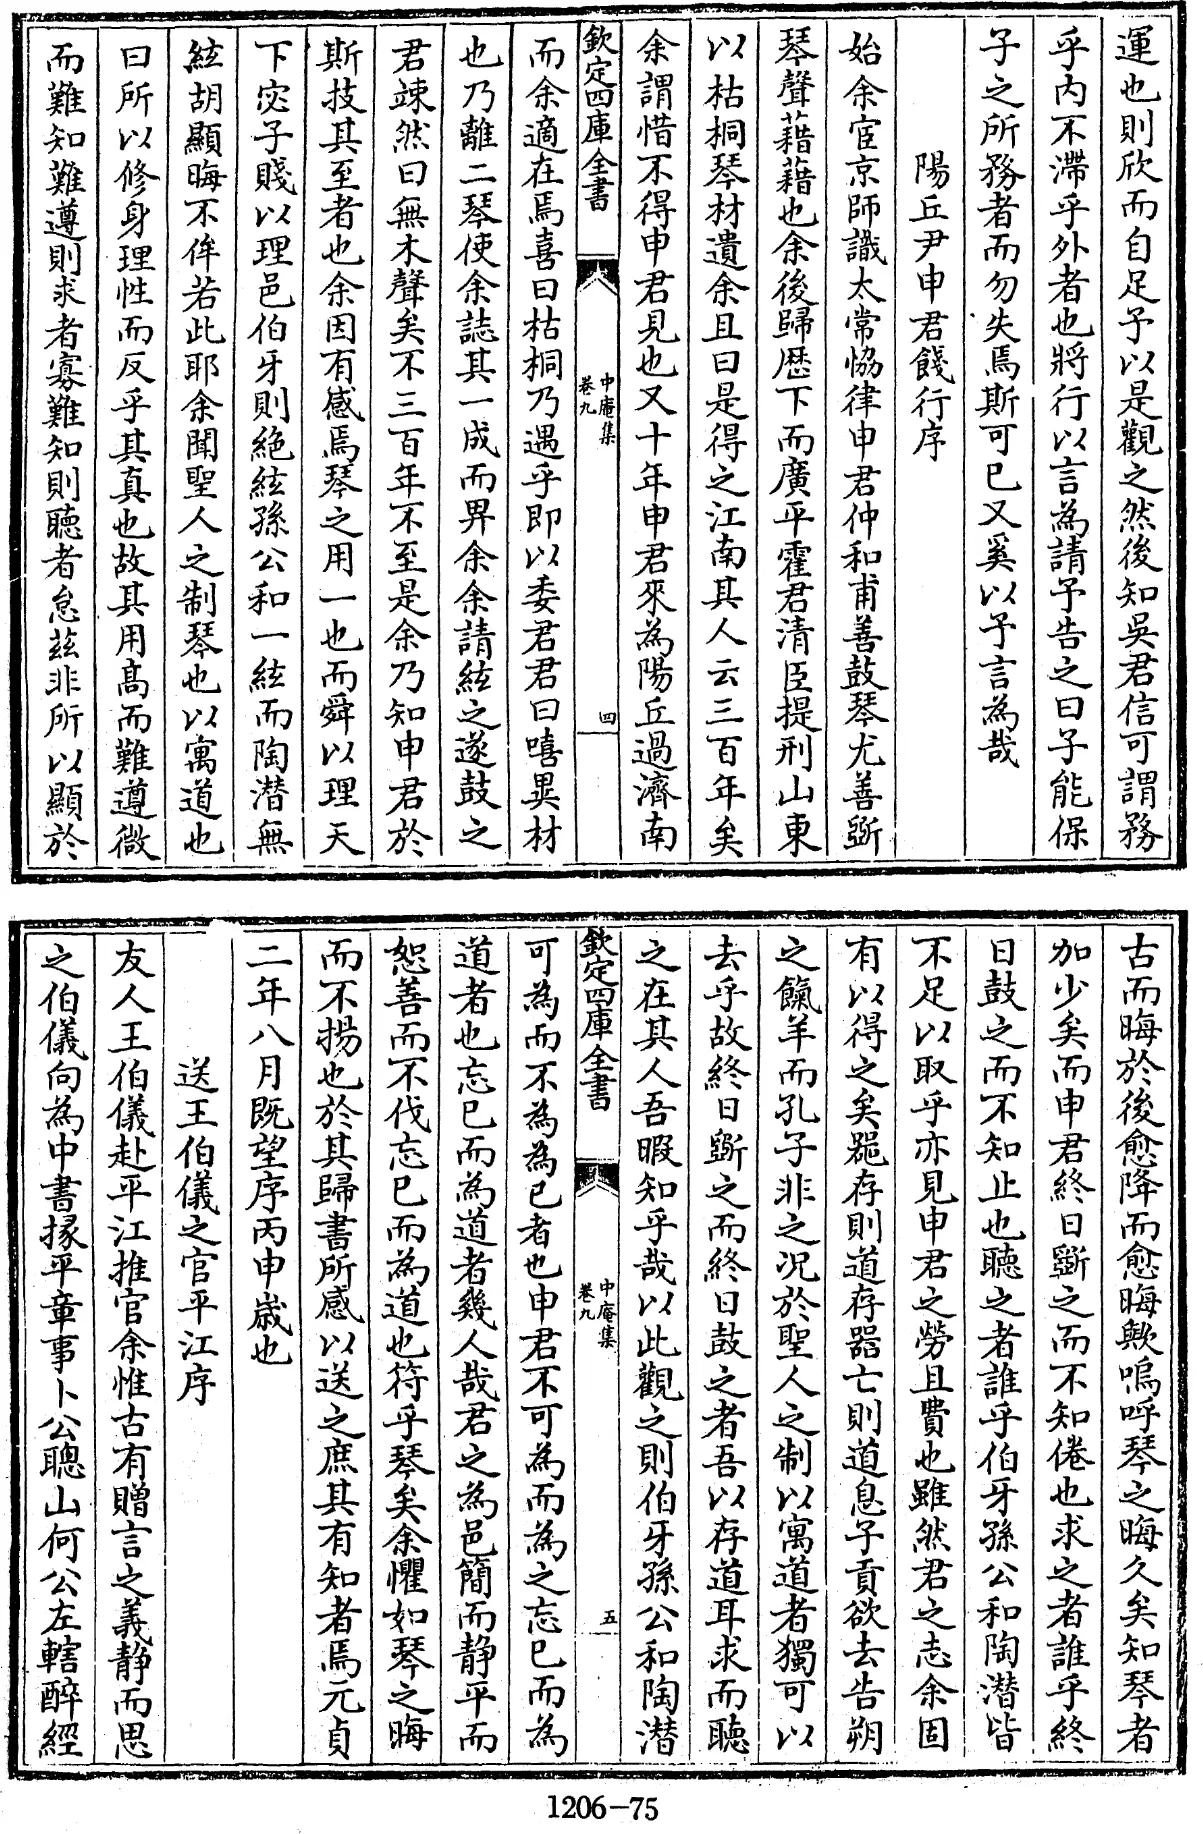 運也則欣而自足予以是觀之然後知吳君信可謂務
乎内不滯乎外者也將行以言為請予告之曰子能保
子之所務者而勿失焉斯可已又奚以予言為哉
陽丘尹申君餞行序
始余宦京師識太常恊律申君仲和甫善鼓琴尤善斵
琴聲藉藉也余後歸歷下而廣平霍君清臣提刑山東
以枯桐琴材遺余且曰是得之江南其人云三百年矣
余謂惜不得申君見也又十年申君來為陽丘過濟南
欽定四庫全書
中庵集
卷九
四
而余適在焉喜曰枯桐乃遇乎即以委君君曰嘻異材
也乃離二琴使余誌其一成而畀余余請絃之遂鼓之
君竦然曰無木聲矣不三百年不至是余乃知申君於
斯技其至者也余因有感焉琴之用一也而舜以理天
下宓子賤以理邑伯牙則絶絃孫公和一絃而陶潜無
絃胡顯晦不侔若此耶余聞聖人之制琴也以寓道也
曰所以修身理性而反乎其真也故其用髙而難遵微
而難知難遵則求者寡難知則聽者怠兹非所以顯於
古而晦於後愈降而愈晦歟嗚呼琴之晦久矣知琴者
加少矣而申君終日斵之而不知倦也求之者誰乎終
日鼓之而不知止也聽之者誰乎伯牙孫公和陶潜皆
不足以取乎亦見申君之勞且費也雖然君之志余固
有以得之矣器存則道存器亡則道息子貢欲去告朔
之餼羊而孔子非之况於聖人之制以寓道者獨可以
去乎故終日斵之而終日鼓之者吾以存道耳求而聽
之在其人吾暇知乎哉以此觀之則伯牙孫公和陶潜
欽定四庫全書
中庵集
卷九
五
可為而不為為已者也申君不可為而為之忘已而為
道者也忘已而為道者幾人哉君之為邑簡而静平而
恕善而不伐忘已而為道也符乎琴矣余懼如琴之晦
而不揚也於其歸書所感以送之庶其有知者焉元貞
二年八月既望序丙申歳也
送王伯儀之官平江序
友人王伯儀赴平江推官余惟古有贈言之義静而思
之伯儀向為中書掾平章事卜公聰山何公左轄醉經
1206-75